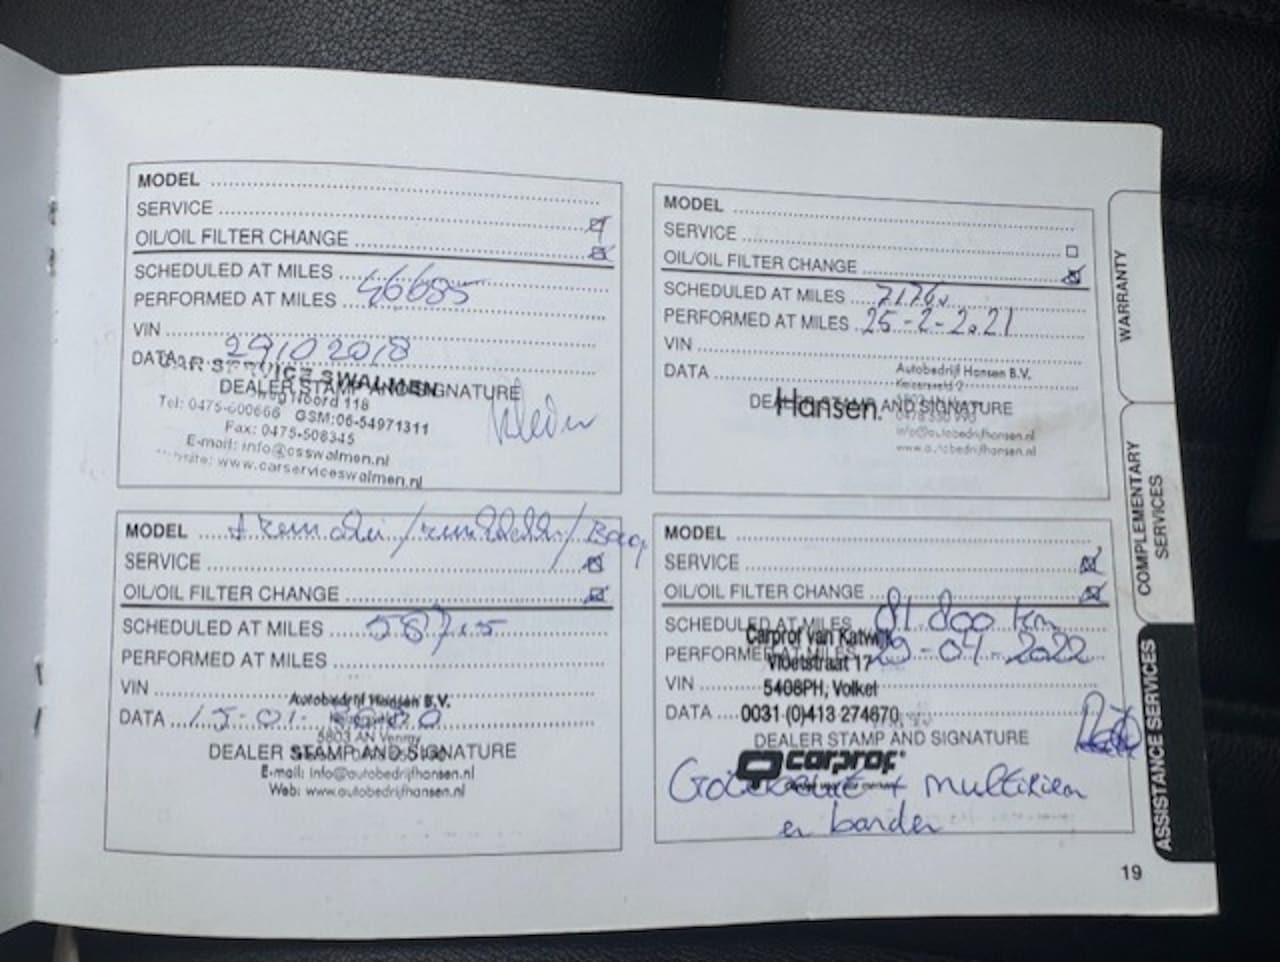 MODEL
SERVICE
OIL/OIL FILTER CHANGE
SCHEDULED AT MILES 46685
PERFORMED AT MILES
VIN
DATA 29 10 2018
CAR SERVICE SWALMEN
DEALER STAMP AND SIGNATURE
Noord 118
Tel: 0475-600666 GSM:06-54971311
Fax: 0475-508345
E-mail: info@csswalmen.nl
www.carserviceswalmen.nl
MODEL
SERVICE
OIL/OIL FILTER CHANGE
SCHEDULED AT MILES
PERFORMED AT MILES 25-2-2021
VIN
DATA
Autobedrijf Hansen B.V.
DEALER STAMP AND SIGNATURE
Hansen.
info@autobedrijfhansen.nl
www.autobedrijfhansen.nl
MODEL
SERVICE
OIL/OIL FILTER CHANGE
SCHEDULED AT MILES
PERFORMED AT MILES
VIN
Autobedrijf Hansen B.V.
DATA
5803 AN Venray
DEALER STAMP AND SIGNATURE
E-mail: info@autobedrijfhansen.nl
Web: www.autobedrijfhansen.nl
MODEL
SERVICE
OIL/OIL FILTER CHANGE
SCHEDULED AT MILES 81.800 km
Carprof van Katwijk
PERFORMED AT MILES
Vloetstraat 17
VIN
5408PH, Volkel
DATA 0031 (0)413 274670
DEALER STAMP AND SIGNATURE
carprof
+ multiriem
en banden
WARRANTY
COMPLEMENTARY
SERVICES
ASSISTANCE SERVICES
19